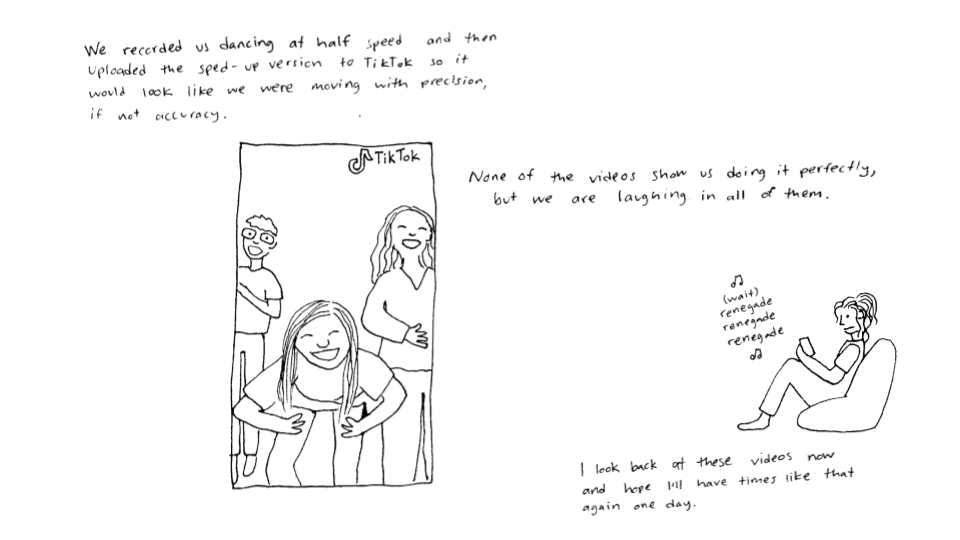 We recorded us dancing at half speed and then
uploaded the sped-up version to TikTok so it
would look like we were moving with precision,
if not accuracy.
TikTok
None of the videos show us doing it perfectly,
but we are laughing in all of them.
(wait)
renegade
renegade
renegade
I look back at these videos now
and hope I'll have times like that
again one day.